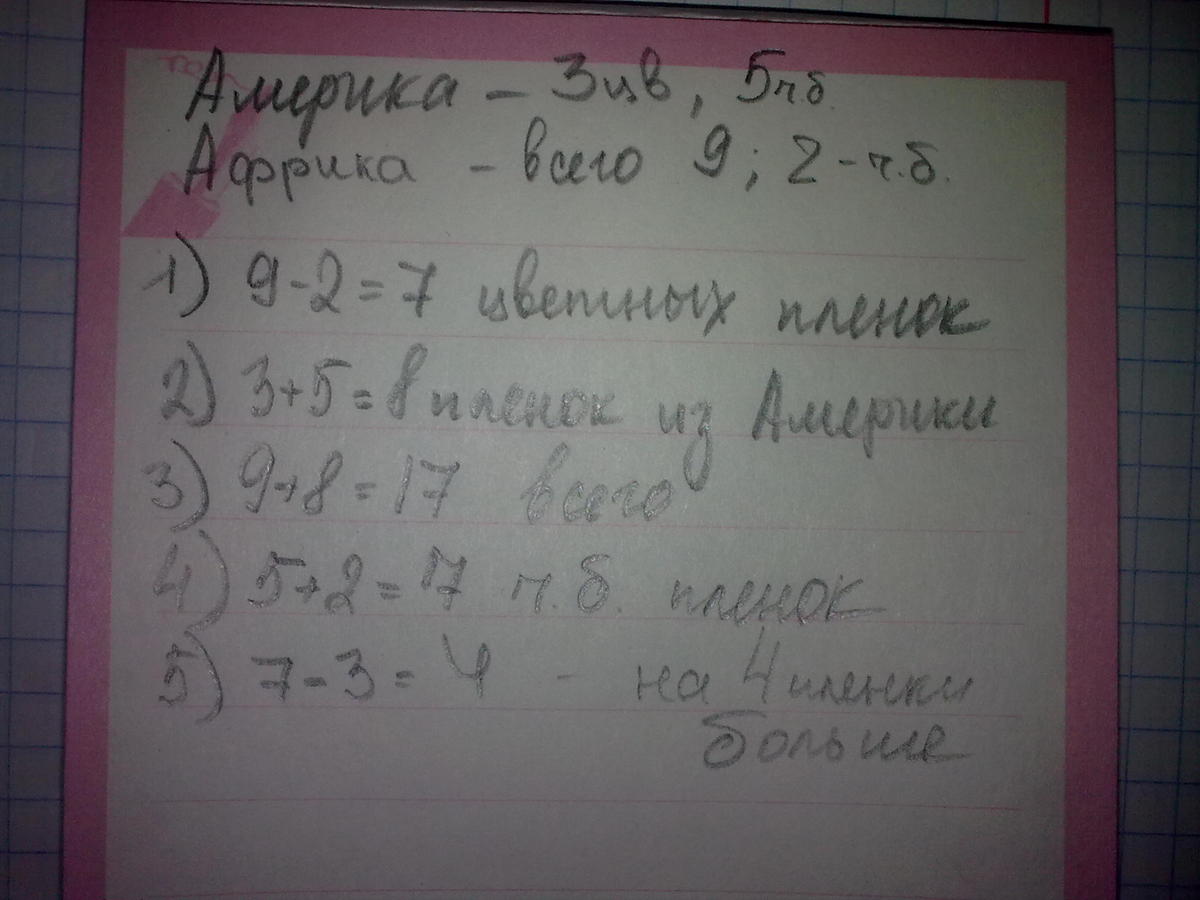 Америка – 3цв, 5ч.б.
Африка – всего 9; 2-ч.б.
1) 9-2=7 цветных пленок
2) 3+5=8 пленок из Америки
3) 9+8=17 всего
4) 5+2=7 ч.б. пленок
5) 7-3=4 - на 4 пленки
больше